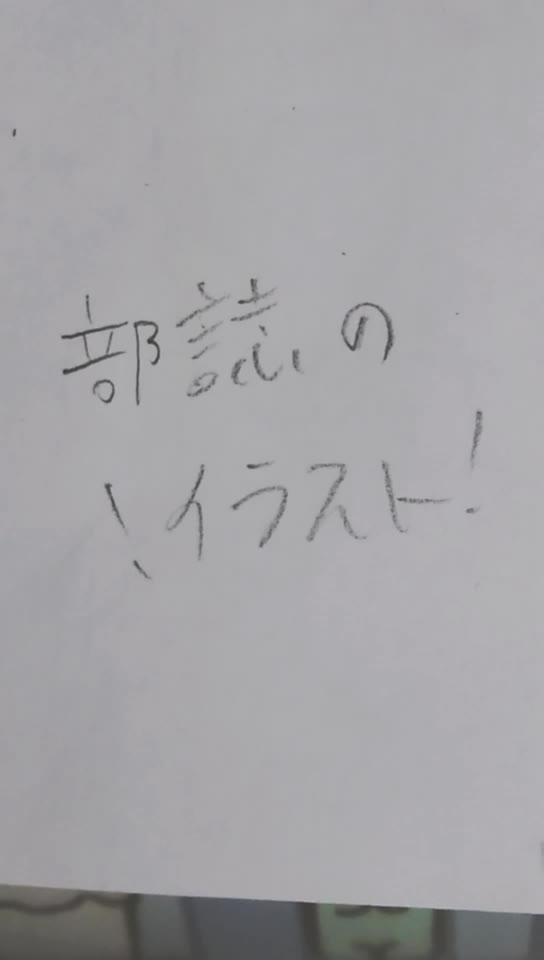 部誌の
\イラスト!